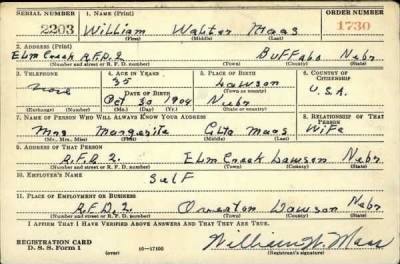 SERIAL NUMBER 1. NAME (Print) ORDER NUMBER
2203 William Walter Maas 1730
(First) (Middle) (Last)
2. ADDRESS (Print)
Elm Creek R.F.D. 2 Buffalo Nebr
(Number and street or R. F. D. number) (Town) (County) (State)
3. TELEPHONE 4. AGE IN YEARS 5. PLACE OF BIRTH 6. COUNTRY OF CITIZENSHIP
None 35 Dawson U.S.A.
DATE OF BIRTH (Town or county)
Oct 30 1904 Nebr
(Exchange) (Number) (Mo.) (Day) (Yr.) (State or country)
7. NAME OF PERSON WHO WILL ALWAYS KNOW YOUR ADDRESS 8. RELATIONSHIP OF THAT PERSON
Mrs Margerite Maas Wife
(Mr., Mrs., Miss) (First) (Middle) (Last)
9. ADDRESS OF THAT PERSON
R.F.D. 2. Elm Creek Dawson Nebr
(Number and street or R. F. D. number) (Town) (County) (State)
10. EMPLOYER'S NAME
Self
11. PLACE OF EMPLOYMENT OR BUSINESS
R.F.D. 2. Overton Dawson Nebr
(Number and street or R. F. D. number) (Town) (County) (State)
I AFFIRM THAT I HAVE VERIFIED ABOVE ANSWERS AND THAT THEY ARE TRUE.
REGISTRATION CARD
D. S. S. Form 1 (over) 16-17100 William W. Maas
(Registrant's signature)